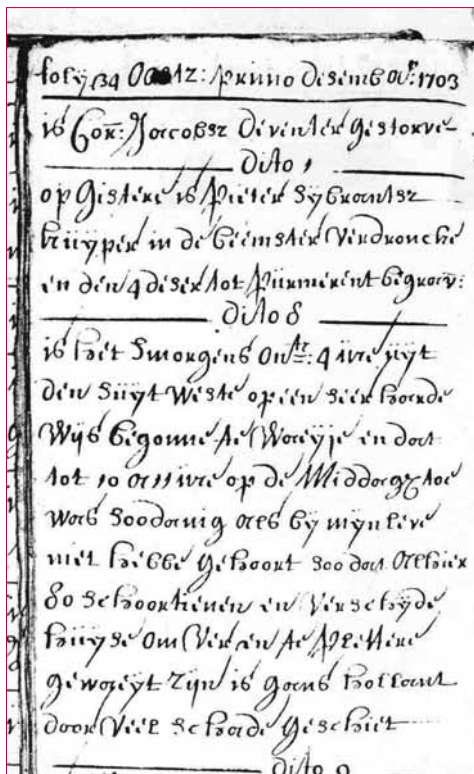 folyo 34 Ao 12: primo Desemb Ao: 1703
is Cor: Jacobsz Deventer Gestorve
Dito 1
op Gistere is Pieter Sybrantsz
kuyper in de beemster Verdroncke
en den 4 deser tot Purmerent begrav:
Dito 8
is het smorgens ontr: 4 ure uyt
den Suyt Weste op een seer harde
Wijs begonne te Waeyje en dat
tot 10 a 11 ure op de Middagh toe
Was soodanig als by myn leve
niet hebbe gehoort soo dat Alhier
80 schoorsteenen en Verschyde
huyse om Ver en te Plettere
gewaeyt Zijn is gans hollant
door Veel schade Geschiet
Dito 9